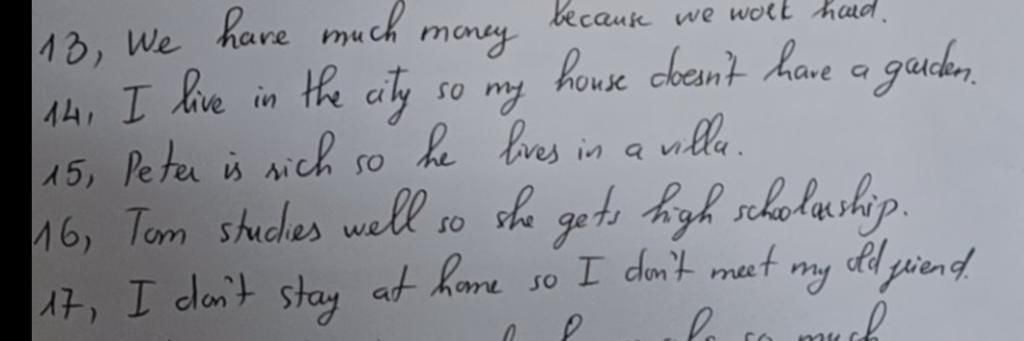 13, We have much money because we work hard.
14, I live in the city so my house doesn't have a garden.
15, Peter is rich so he lives in a villa.
16, Tom studies well so she gets high scholarship.
17, I don't stay at home so I don't meet my old friend.
so much